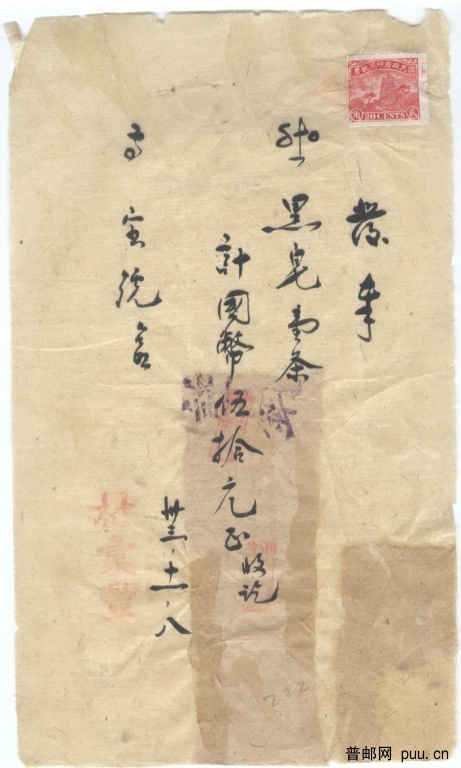 發奉
黑皂壹条
計國幣伍拾元正收訖
宝號 台
卅三.十一.八
20 CENTS
222
普邮网 puu.cn